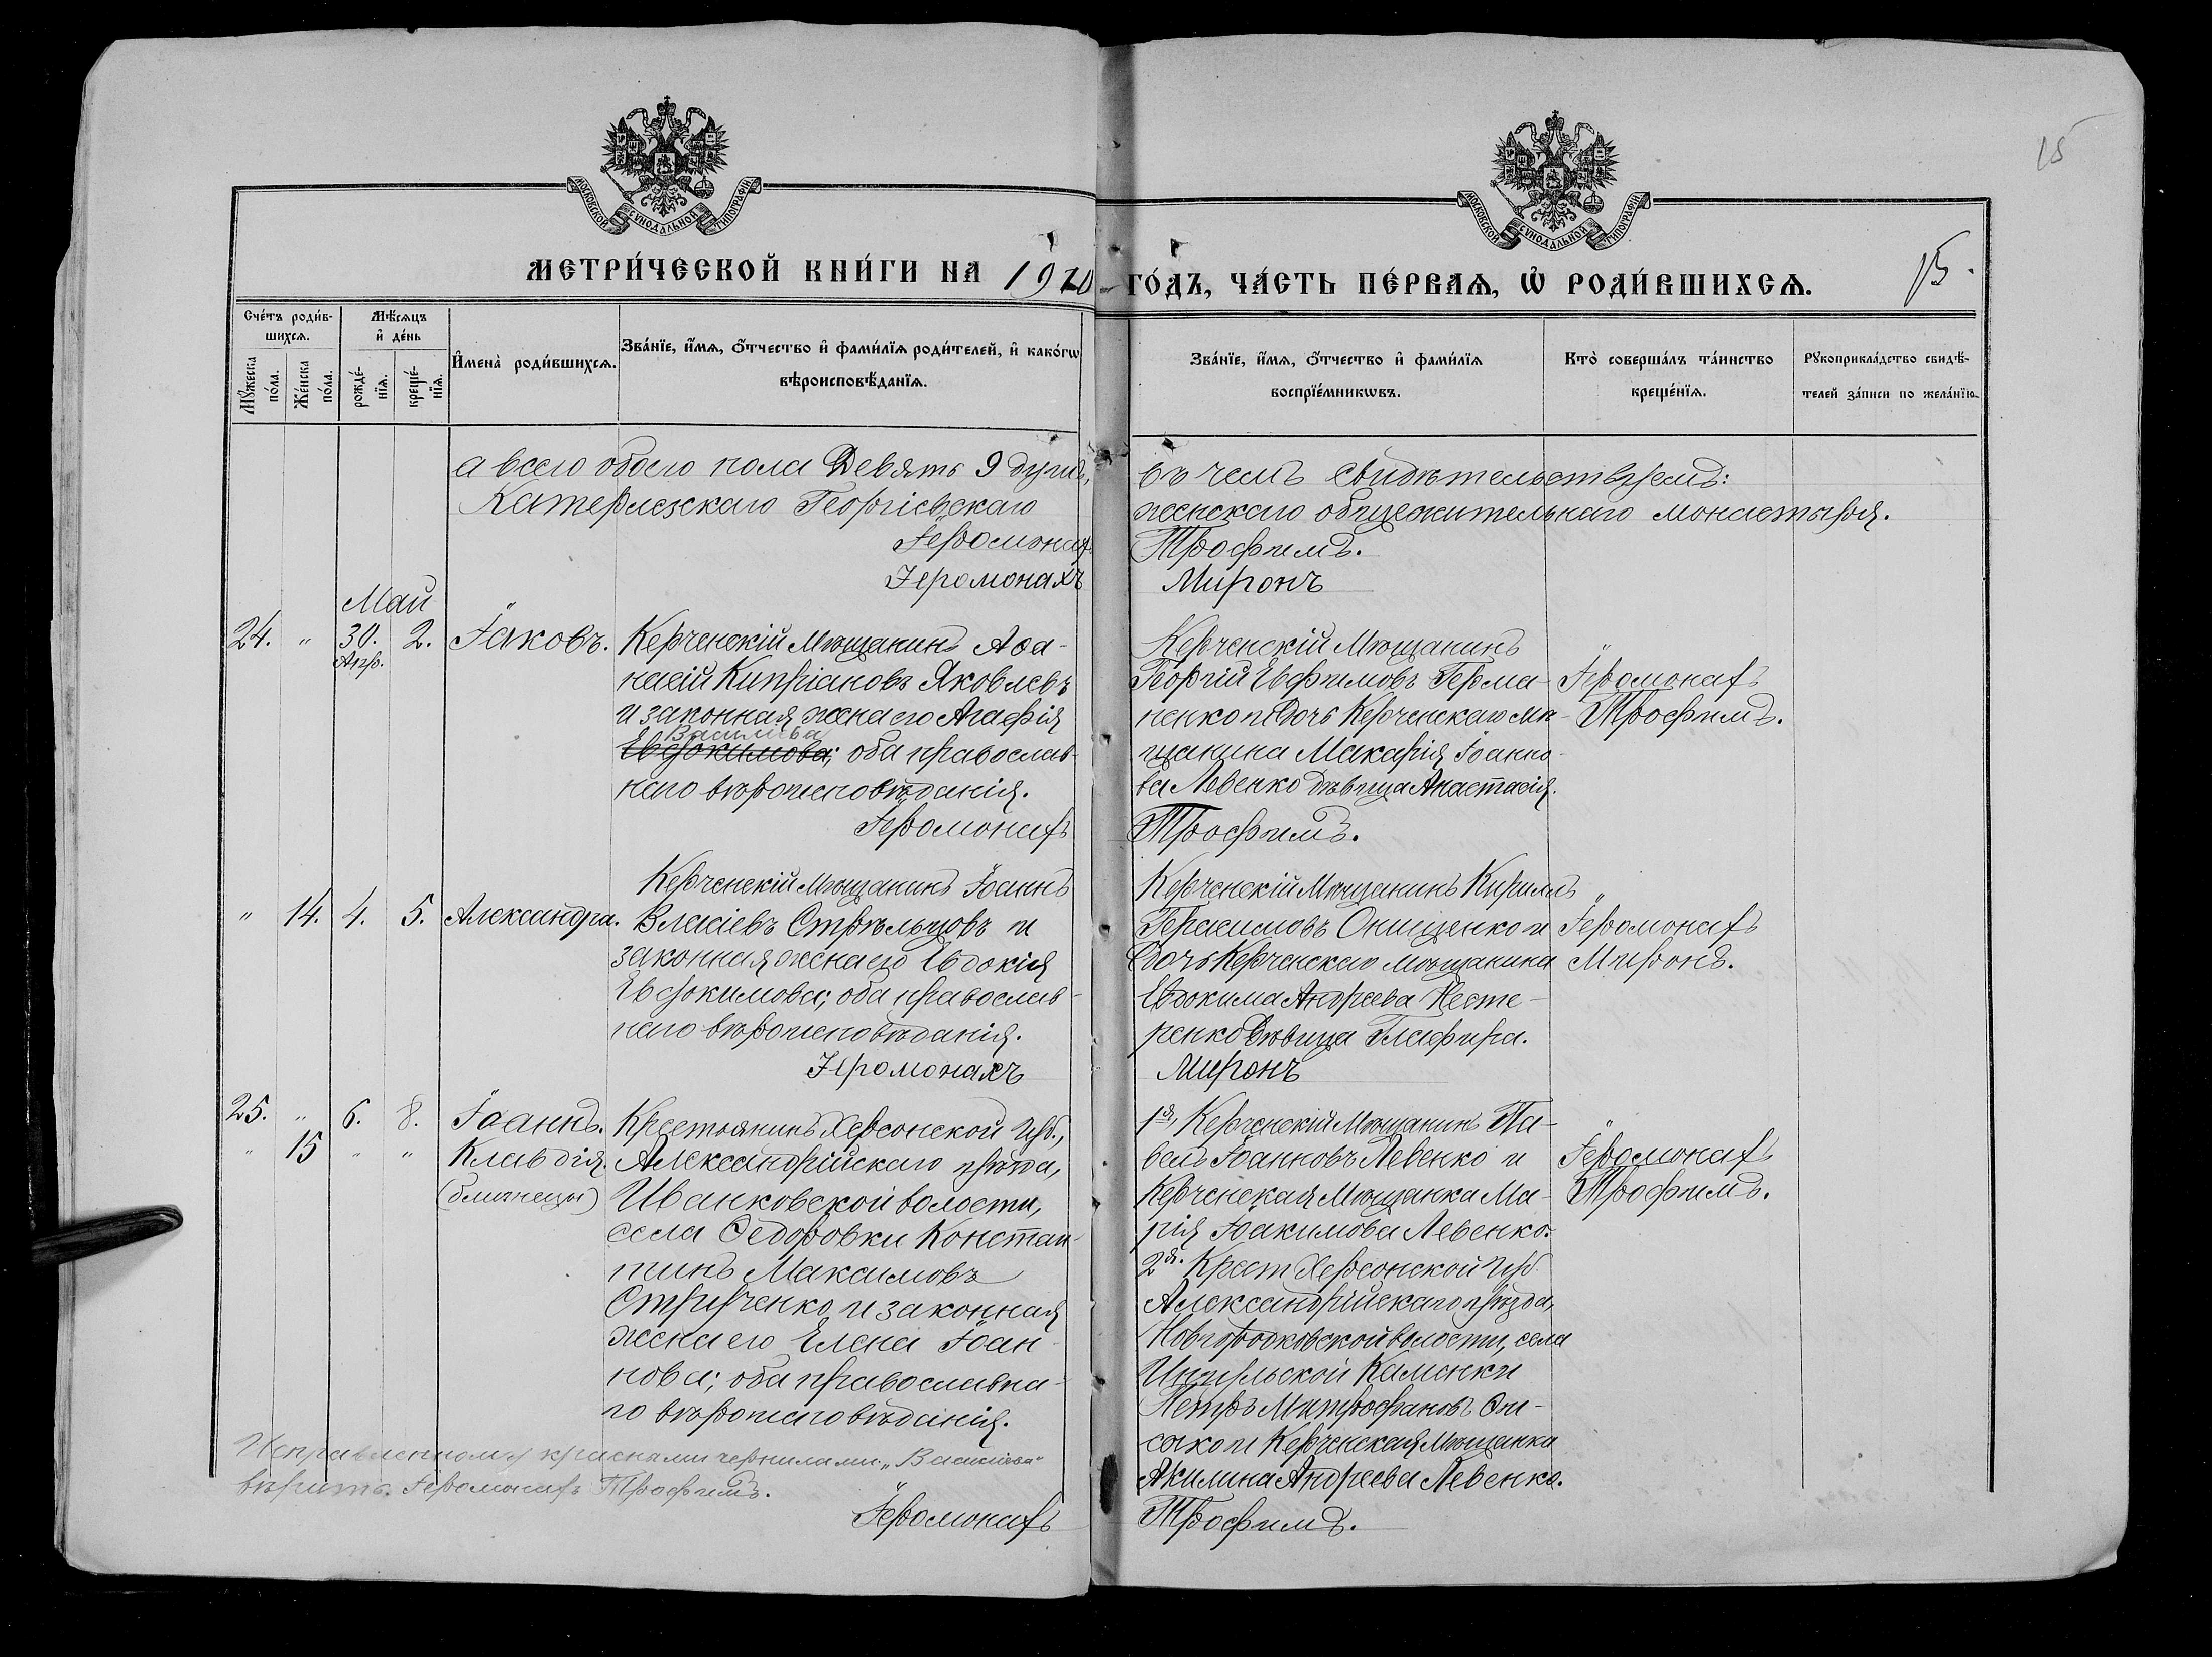 15
МОСКОВСКОЙ СѴНОДАЛЬНОЙ ТИПОГРАФІИ
МОСКОВСКОЙ СѴНОДАЛЬНОЙ ТИПОГРАФІИ
МЕТРИ́ЧЕСКОЙ КНИ́ГИ НА 1910 ГО́ДЪ, ЧА́СТЬ ПЕ́РВАѦ, Ѡ҆ РОДИ́ВШИХСѦ.
15.
Сче́тъ роди́в-
шихсѧ.
Мꙋ́жеска по́ла.
Же́нска по́ла.
Мѣ́сѧцъ
и҆ де́нь
рожде́-
нїѧ.
креще́-
нїѧ.
И҆мена̀ роди́вшихсѧ.
Зва́нїе, и҆́мѧ, ѻ҆́тчество и҆ фами́лїѧ роди́телей, и҆ како́гѡ
вѣроисповѣ́данїѧ.
Зва́нїе, и҆́мѧ, ѻ҆́тчество и҆ фами́лїѧ
воспрїе́мникѡвъ.
Кто̀ соверша́лъ та́инство
креще́нїѧ.
Рꙋкоприкла́дство свидѣ́-
телей за́писи по жела́нїю.
а всего обоего пола Девять 9 душъ,
Катерлезскаго Георгіевскаго
Іеромонахъ
Іеромонахъ
въ чемъ свидѣтельствуемъ:
женскаго общежительнаго монастыря.
Трофимъ.
Миронъ
Май
24. " 30. 2. Іаковъ.
Апр.
Керченскій Мѣщанинъ Аѳа-
насій Кипріановъ Яковлевъ
и законная жена его Агафія
Васильева
Евфокимова; оба православ-
наго вѣроисповѣданія.
Іеромонахъ
Керченскій Мѣщанинъ
Георгій Евфимовъ Герма-
ненко и дочь Керченскаго мѣ-
щанина Макарія Іоанно-
ва Левенко дѣвица Анастасія.
Трофимъ.
Іеромонахъ
Трофимъ.
" 14. 4. 5. Александра.
Керченскій Мѣщанинъ Іоаннъ
Власіевъ Стрѣльцовъ и
законная жена его Евдокія
Евфокимова; оба православ-
наго вѣроисповѣданія.
Іеромонахъ
Керченскій Мѣщанинъ Кириллъ
Герасимовъ Онищенко и
дочь Керченскаго мѣщанина
Евдокима Андреева Несте-
ренко дѣвица Глафира.
Миронъ
Іеромонахъ
Миронъ.
25. " 6. 8. Іоаннъ.
" 15 " " Клавдія.
(близнецы)
Крестьянинъ Херсонской губ.,
Александрійскаго уѣзда,
Иванковской волости,
села Ѳедоровки Констан-
тинъ Максимовъ
Стригченко и законная
жена его Елена Іоан-
нова; оба православна-
го вѣроисповѣданія.
1я, Керченскій Мѣщанинъ Па-
велъ Іоанновъ Левенко и
Керченская Мѣщанка Ма-
рія Іоакимова Левенко.
2я. Крест Херсонской губ.
Александрійскаго уѣзда,
Новгородковской волости, села
Ингульской Каменки
Петръ Митрофановъ
и Керченская Мѣщанка
Акилина Андреева Левенко.
Трофимъ.
Іеромонахъ
Трофимъ.
Исправленному красными чернилами: „Васильева"
вѣрить. Іеромонахъ Трофимъ.
Іеромонахъ